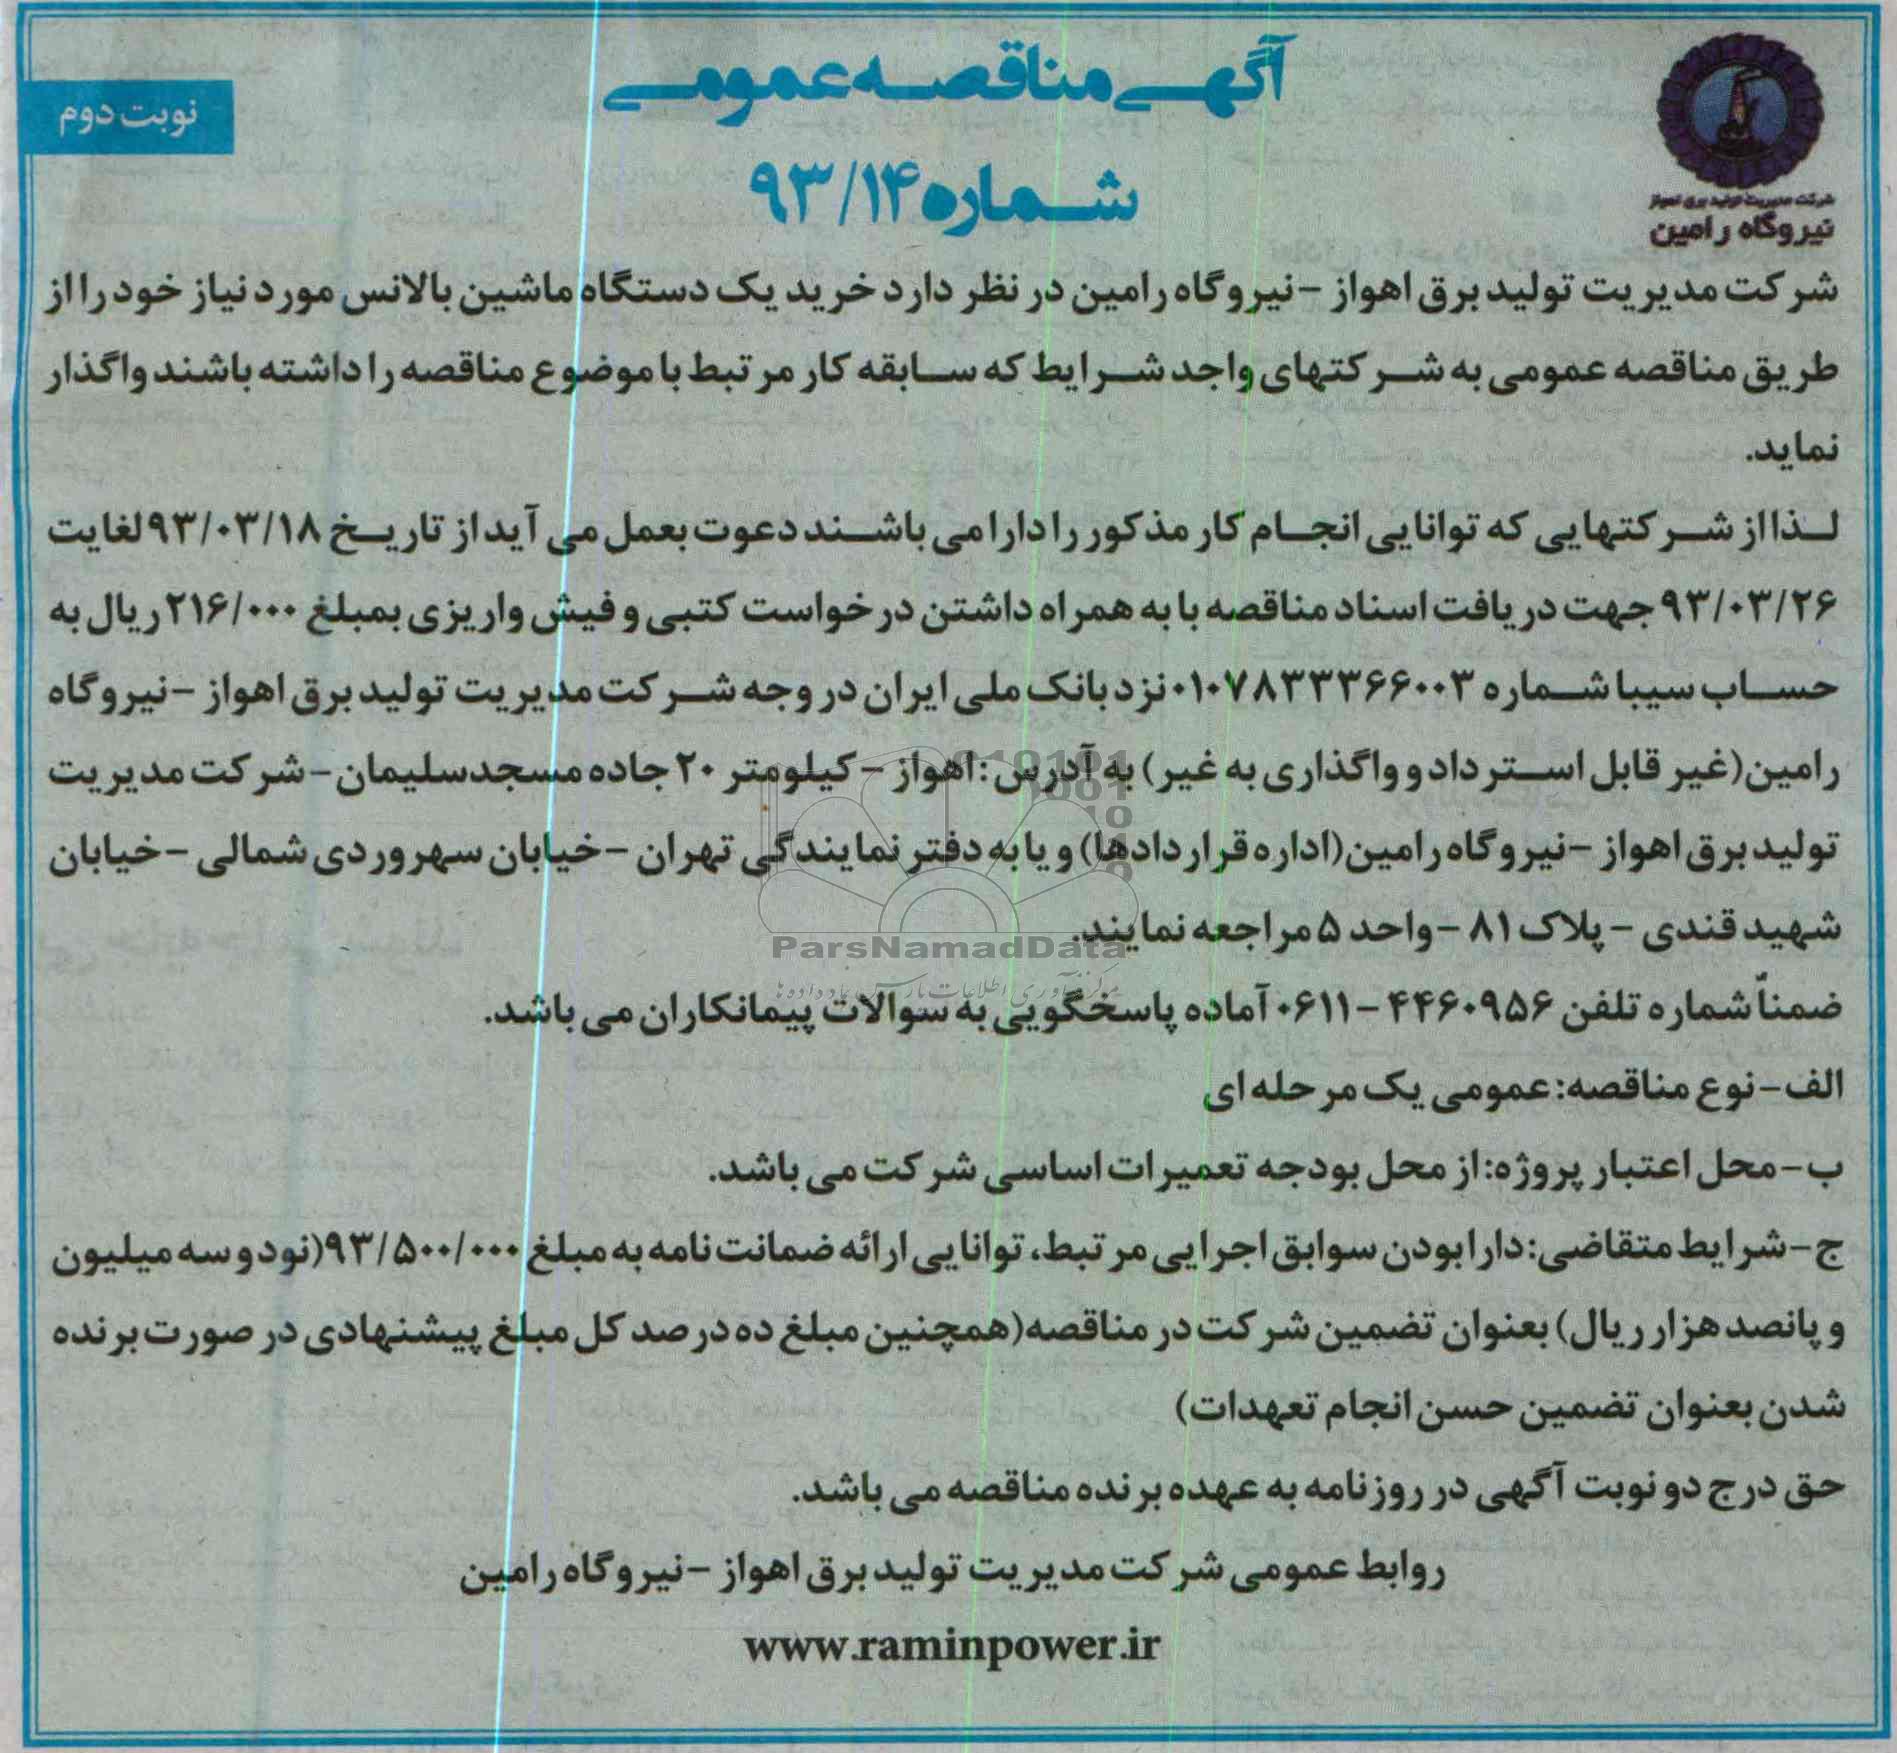 آگهی مناقصه عمومی
نوبت دوم
شماره ۹۳/۱۴
شرکت مدیریت تولید برق اهواز
نیروگاه رامین
شرکت مدیریت تولید برق اهواز - نیروگاه رامین در نظر دارد خرید یک دستگاه ماشین بالانس مورد نیاز خود را از
طریق مناقصه عمومی به شرکتهای واجد شرایط که سابقه کار مرتبط با موضوع مناقصه را داشته باشند واگذار
نماید.
لذا از شرکتهایی که توانایی انجام کار مذکور را دارا می باشند دعوت بعمل می آید از تاریخ ۹۳/۰۳/۱۸ لغایت
۹۳/۰۳/۲۶ جهت دریافت اسناد مناقصه با به همراه داشتن درخواست کتبی و فیش واریزی بمبلغ ۲۱۶/۰۰۰ ریال به
حساب سیبا شماره ۰۱۰۷۸۳۳۳۶۶۰۰۳ نزد بانک ملی ایران در وجه شرکت مدیریت تولید برق اهواز - نیروگاه
رامین (غیر قابل استرداد و واگذاری به غیر) به آدرس: اهواز - کیلومتر ۲۰ جاده مسجدسلیمان - شرکت مدیریت
تولید برق اهواز - نیروگاه رامین (اداره قراردادها) و یا به دفتر نمایندگی تهران - خیابان سهروردی شمالی - خیابان
شهید قندی - پلاک ۸۱ - واحد ۵ مراجعه نمایند.
ParsNamadData
ضمناً شماره تلفن ۴۴۶۰۹۵۶ - ۰۶۱۱ آماده پاسخگویی به سوالات پیمانکاران می باشد.
الف - نوع مناقصه: عمومی یک مرحله ای
ب - محل اعتبار پروژه: از محل بودجه تعمیرات اساسی شرکت می باشد.
ج - شرایط متقاضی: دارا بودن سوابق اجرایی مرتبط، توانایی ارائه ضمانت نامه به مبلغ ۹۳/۵۰۰/۰۰۰ (نود و سه میلیون
و پانصد هزار ریال) بعنوان تضمین شرکت در مناقصه (همچنین مبلغ ده درصد کل مبلغ پیشنهادی در صورت برنده
شدن بعنوان تضمین حسن انجام تعهدات)
حق درج دو نوبت آگهی در روزنامه به عهده برنده مناقصه می باشد.
روابط عمومی شرکت مدیریت تولید برق اهواز - نیروگاه رامین
www.raminpower.ir